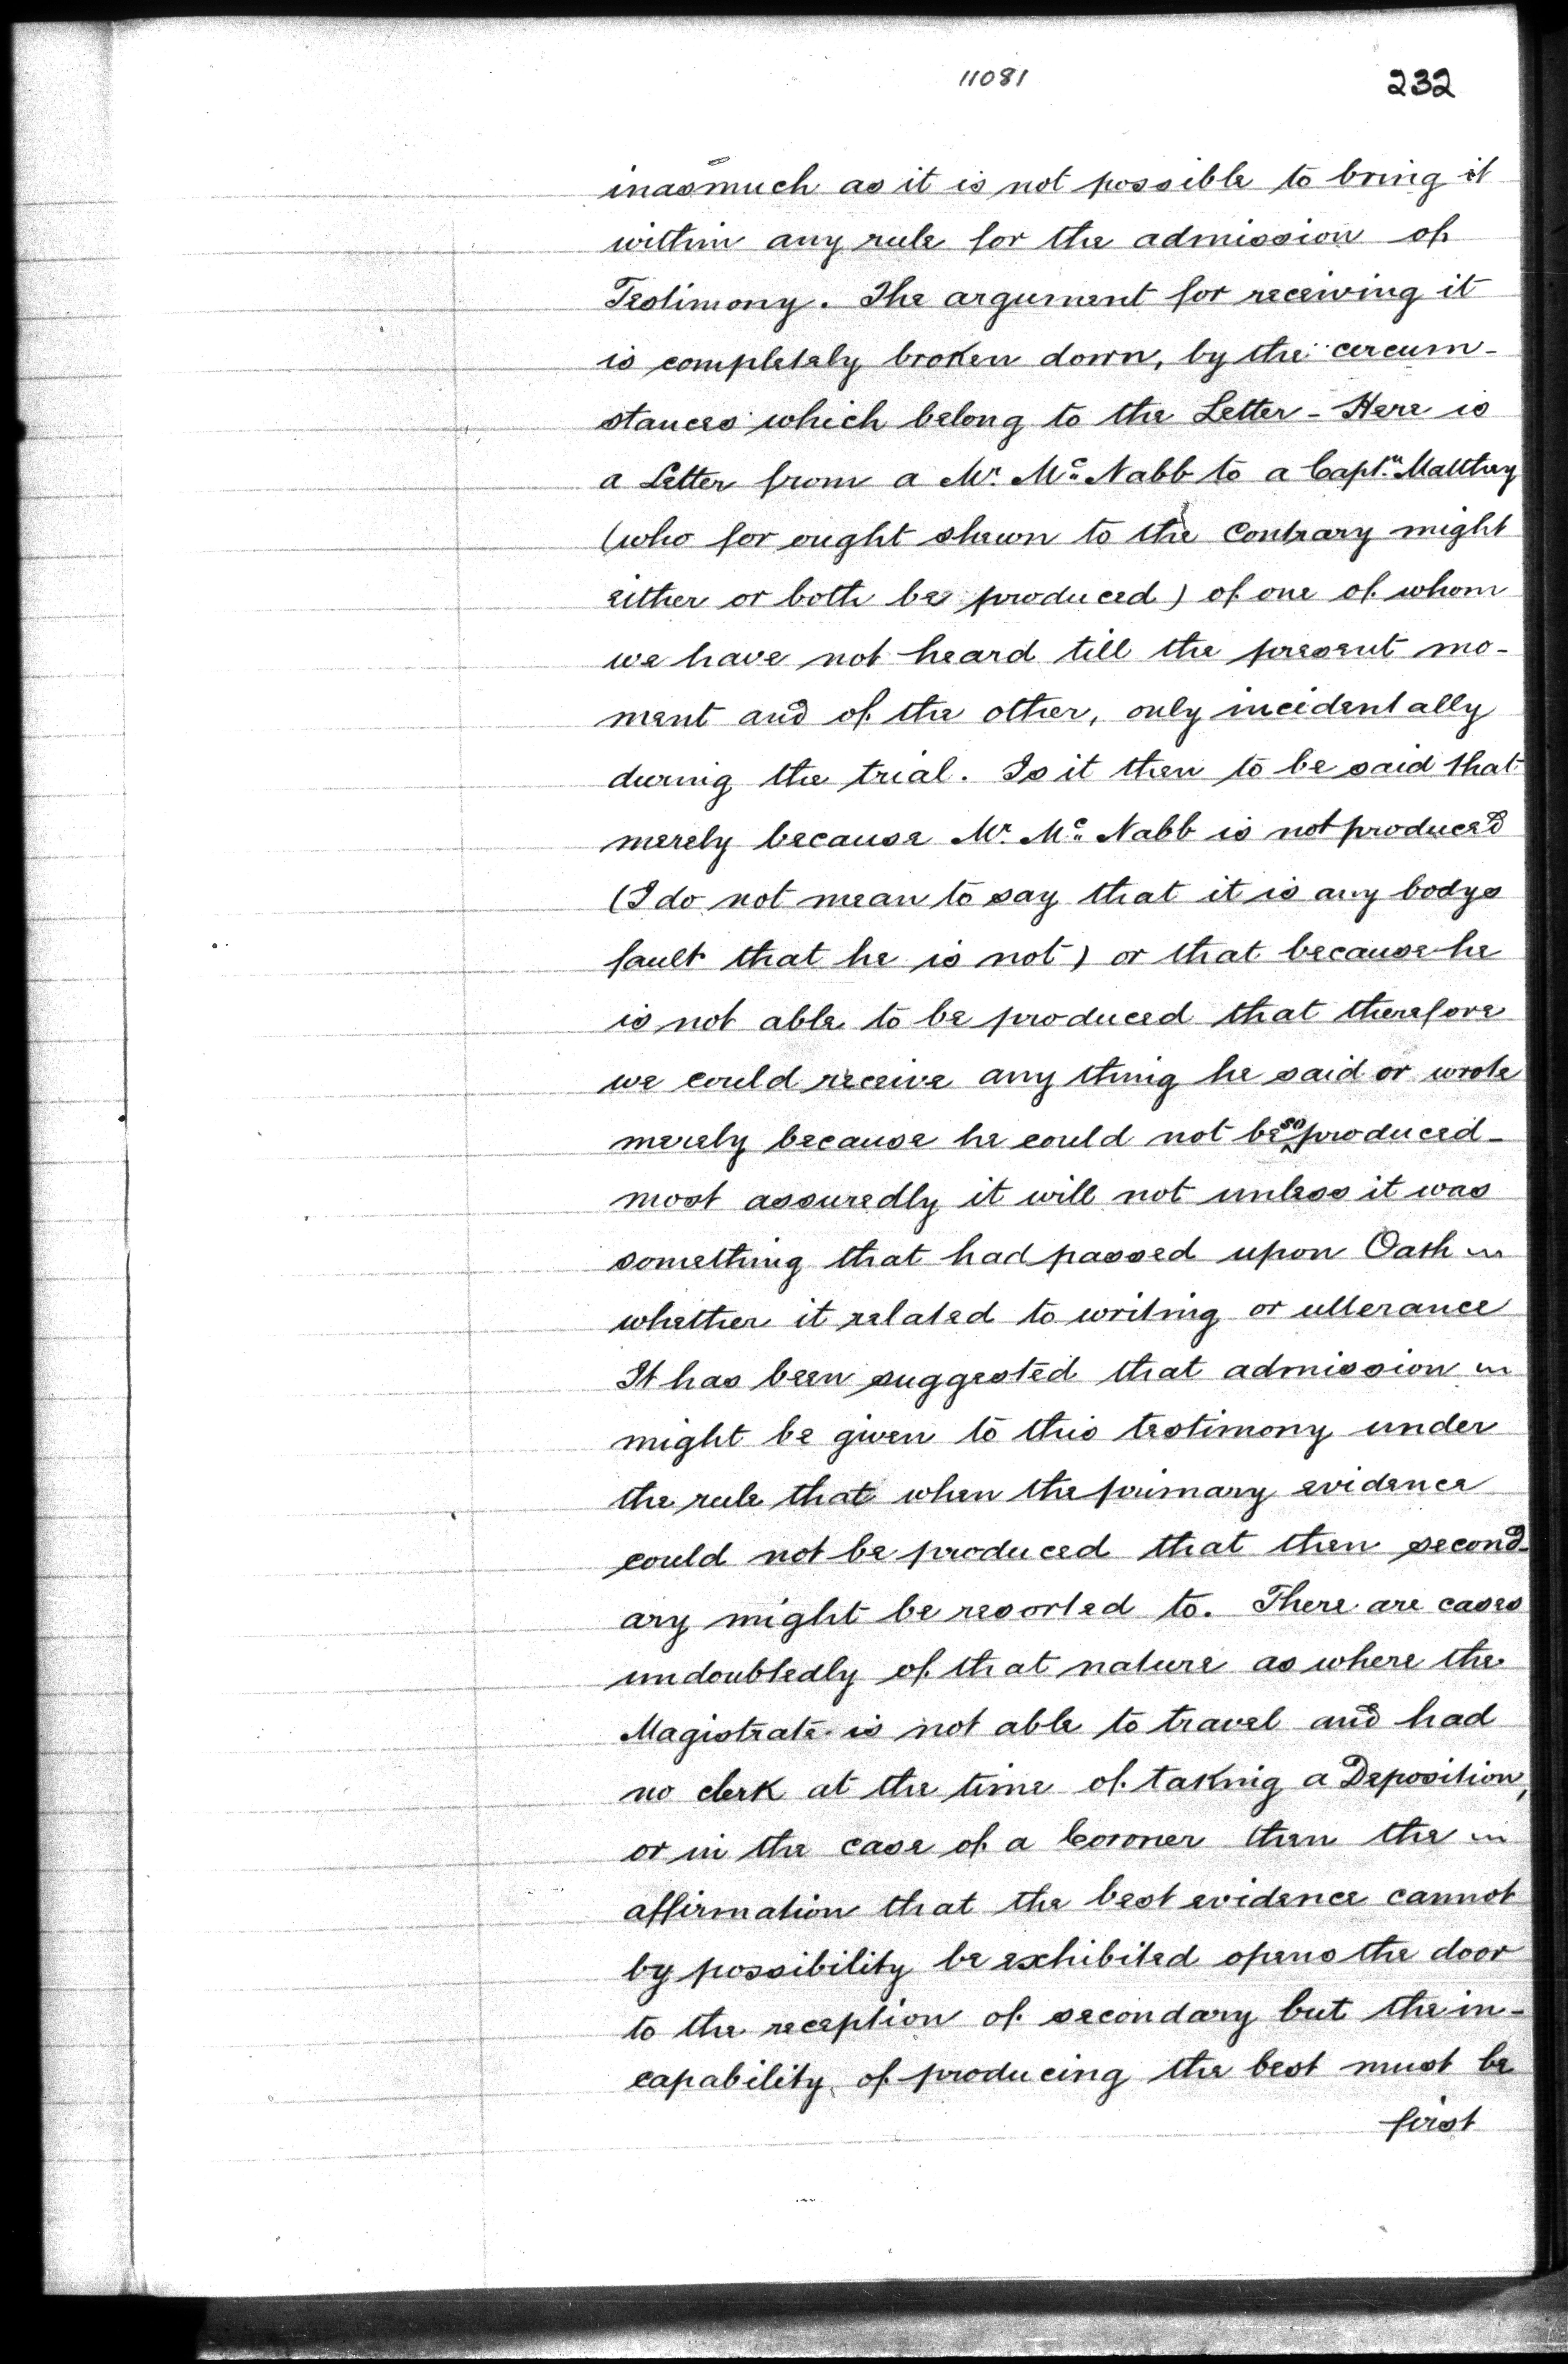 11081
232
inasmuch as it is not possible to bring it
within any rule for the admission of
Testimony. The argument for receiving it
is completely broken down, by the circum-
stances which belong to the Letter - Here is
a Letter from a Mr. Mc. Nabb to a Captn. Matthey
(who for ought shewn to the Contrary might
either or both be produced) of one of whom
we have not heard till the present mo-
ment and of the other, only incidentally
during the trial. Is it then to be said that
merely because Mr. Mc. Nabb is not produced
(I do not mean to say that it is any bodys
fault that he is not) or that because he
is not able to be produced that therefore
we could receive any thing he said or wrote
merely because he could not be so produced -
most assuredly it will not unless it was
something that had passed upon Oath
whether it related to writing or utterance
It has been suggested that admission
might be given to this testimony under
the rule that when the primary evidence
could not be produced that then second-
ary might be resorted to. There are cases
undoubtedly of that nature as where the
Magistrate is not able to travel and had
no clerk at the time of taking a Deposition,
or in the case of a Coroner then the
affirmation that the best evidence cannot
by possibility be exhibited opens the door
to the reception of secondary but the in-
capability of producing the best must be
first